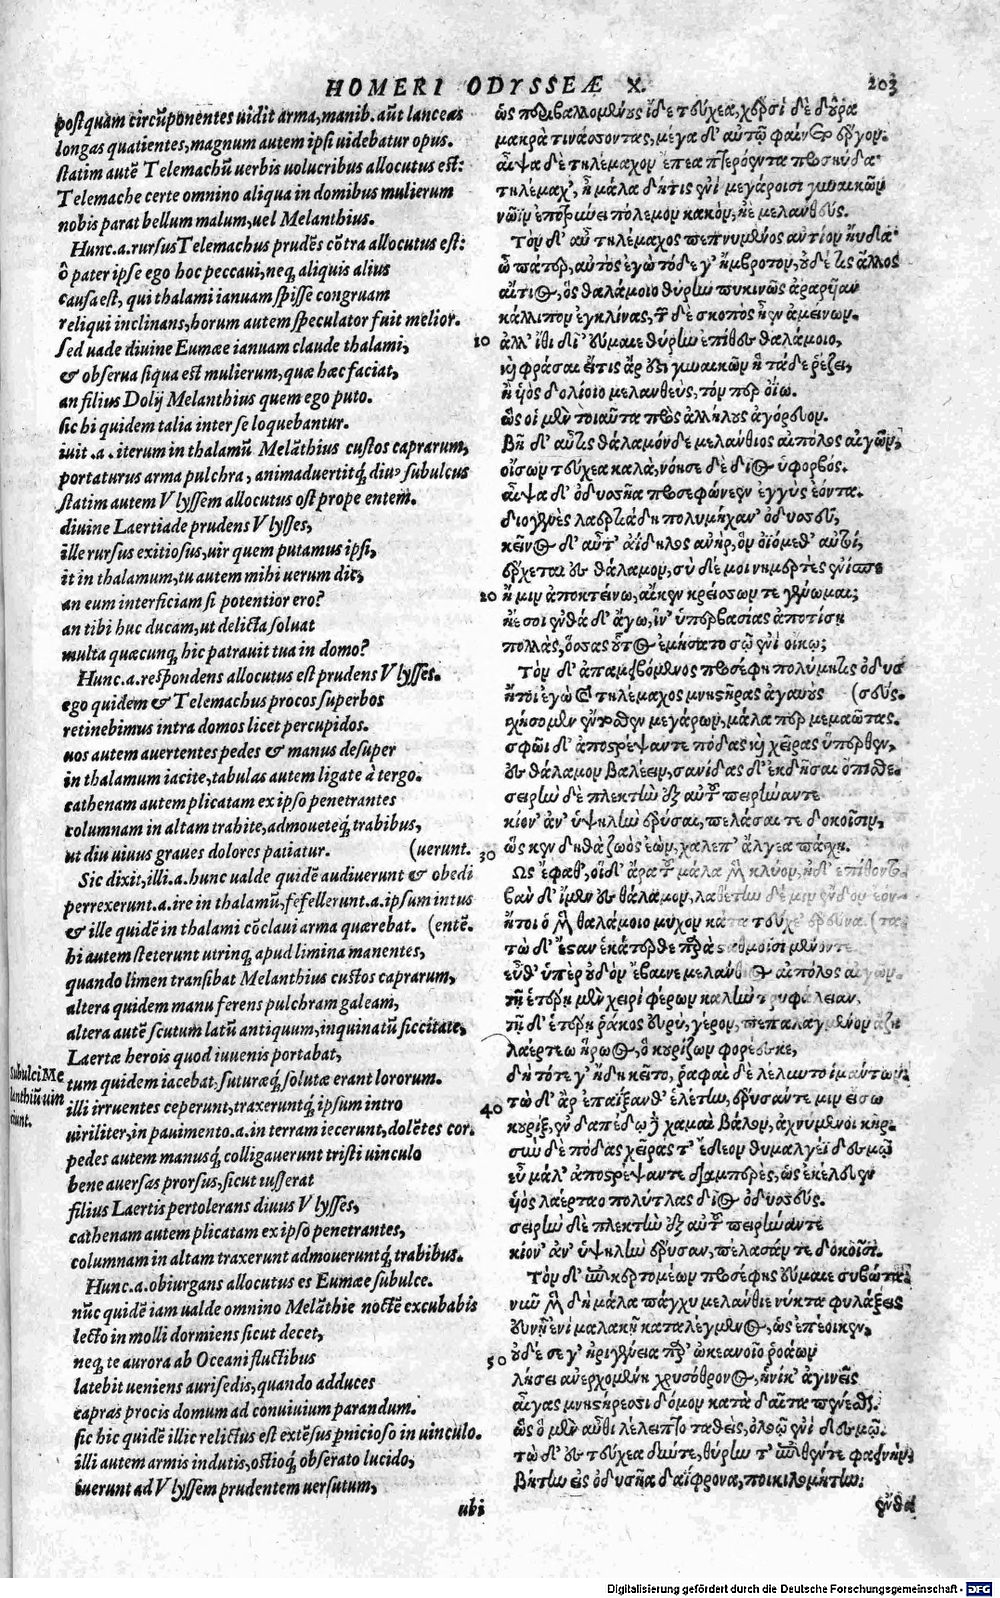 HOMERI ODYSSEÆ X. 203
postquam circũponentes uidit arma, manib. aũt lanceas
longas quatientes, magnum autem ipsi uidebatur opus.
statim autẽ Telemachũ uerbis uolucribus allocutus est:
Telemache certe omnino aliqua in domibus mulierum
nobis parat bellum malum, uel Melanthius.
Hunc.a. rursus Telemachus prudẽs cõtra allocutus est:
ô pater ipse ego hoc peccaui, neq; aliquis alius
causa est, qui thalami ianuam spisse congruam
reliqui inclinans, horum autem speculator fuit melior.
Sed uade diuine Eumæe ianuam claude thalami,
& obserua siqua est mulierum, quæ hæc faciat,
an filius Dolij Melanthius quem ego puto.
sic hi quidem talia inter se loquebantur.
iuit .a. iterum in thalamũ Melãthius custos caprarum,
portaturus arma pulchra, animaduertitq; diuꝰ subulcus
statim autem Vlyssem allocutus est prope entem.
diuine Laertiade prudens Vlysses,
ille rursus exitiosus, uir quem putamus ipsi,
it in thalamum, tu autem mihi uerum dic,
an eum interficiam si potentior ero?
an tibi huc ducam, ut delicta soluat
multa quæcunq; hic patrauit tua in domo?
Hunc.a. respondens allocutus est prudens Vlysses.
ego quidem & Telemachus procos superbos
retinebimus intra domos licet percupidos.
uos autem auertentes pedes & manus desuper
in thalamum iacite, tabulas autem ligate à tergo.
cathenam autem plicatam ex ipso penetrantes
columnam in altam trahite, admoueteq; trabibus,
ut diu uiuus graues dolores patiatur. (uerunt.
Sic dixit, illi.a. hunc ualde quidẽ audiuerunt & obedi
perrexerunt.a. ire in thalamũ, fefellerunt.a. ipsum intus
& ille quidẽ in thalami cõclaui arma quærebat. (entẽ.
hi autem steterunt utrinq; apud limina manentes,
quando limen transibat Melanthius custos caprarum,
altera quidem manu ferens pulchram galeam,
altera autẽ scutum latũ antiquum, inquinatũ siccitate,
Laertæ herois quod iuuenis portabat,
tum quidem iacebat, suturæq; solutæ erant lororum.
illi irruentes ceperunt, traxeruntq; ipsum intro
uiriliter, in pauimento.a. in terram iecerunt, dolẽtes cor.
pedes autem manusq; colligauerunt tristi uinculo
bene auersas prorsus, sicut iusserat
filius Laertis pertolerans diuus Vlysses,
cathenam autem plicatam ex ipso penetrantes,
columnam in altam traxerunt admoueruntq; trabibus.
Hunc.a. obiurgans allocutus es Eumæe subulce.
nũc quidẽ iam ualde omnino Melãthie noctẽ excubabis
lecto in molli dormiens sicut decet,
neq; te aurora ab Oceani fluctibus
latebit ueniens aurisedis, quando adduces
capras procis domum ad conuiuium parandum.
sic hic quidẽ illic relictus est extẽsus pnicioso in uinculo.
illi autem armis indutis, ostioq; obserato lucido,
iuerunt ad Vlyssem prudentem uersutum,
ubi
Subulci Me
lanthiũ uin
ciunt.
ὡς περιβαλλομένους ἴδε τεύχεα, χερσὶ δὲ δοῦρα
μακρὰ τινάσσοντας, μέγα δ' αὐτῷ φαίνετο ἔργον.
αἶψα δὲ τηλέμαχον ἔπεα πτερόεντα προσηύδα·
τηλέμαχ', ἦ μάλα δήτις ἐνὶ μεγάροισι γυναικῶν
νῶϊν ἐποτρύνει πόλεμον κακὸν, ἠὲ μελανθεύς.
Τὸν δ' αὖ τηλέμαχος πεπνυμένος αὐτίον ηὔδα·
ὦ πάτερ, αὐτὸς ἐγὼ τόδε γ' ἤμβροτον, οὐδέ τις ἄλλος
αἴτιος, ὃς θαλάμοιο θύρην πυκινῶς ἀραρῆαν
κάλλιπον ἐγκλίνας, τῶν δὲ σκοπὸς ἦεν ἀμείνων.
10 ἀλλ' ἴθι δῖ' εὔμαιε θύρην ἐπίθες θαλάμοιο,
καὶ φράσαι εἴτις ἄρ' ἐστὶ γυναικῶν ἣ τάδε ῥέζει,
ἢ υἱὸς δολίοιο μελανθεὺς, τόν περ ὀΐω.
ὣς οἱ μὲν τοιαῦτα πρὸς ἀλλήλους ἀγόρευον.
Βῆ δ' αὖτις θάλαμόνδε μελάνθιος αἰπόλος αἰγῶν,
οἴσων τεύχεα καλὰ, νόησε δὲ δῖος ὑφορβός.
αἶψα δ' ὀδυσσῆα προσεφώνεεν ἐγγὺς ἐόντα.
διογενὲς λαερτιάδη πολυμήχαν' ὀδυσσεῦ,
κεῖνος δ' αὖτ' ἀΐδηλος ἀνὴρ, ὃν ὀϊόμεθ' αὐτοί,
ἔρχεται ἐς θάλαμον, σὺ δέ μοι νημερτὲς ἐνίσπες
20 ἤ μιν ἀποκτείνω, αἴκεν κρείσσων γε γένωμαι;
ἦέ σοι ἐνθάδ' ἄγω, ἵν' ὑπερβασίας ἀποτίσῃ
πολλὰς, ὅσσας οὗτος ἐμήσατο σῷ ἐνὶ οἴκῳ;
Τὸν δ' ἀπαμειβόμενος προσέφη πολύμητις ὀδυσ
ἤτοι ἐγὼ καὶ τηλέμαχος μνηστῆρας ἀγαυοὺς (σεύς.
σχήσομεν ἔντοσθεν μεγάρων, μάλα περ μεμαῶτας.
σφῶϊ δ' ἀποστρέψαντε πόδας καὶ χεῖρας ὕπερθεν,
ἐς θάλαμον βαλέειν, σανίδας δ' ἐκδῆσαι ὄπισθε.
σειρὴν δὲ πλεκτὴν ἐξ αὐτοῦ πειρήναντε
κίον' ἀν' ὑψηλὴν ἐρύσαι, πελάσαι τε δοκοῖσιν,
30 ὥς κεν δηθὰ ζωὸς ἐὼν, χαλέπ' ἄλγεα πάσχῃ.
Ὣς ἔφαθ', οἱ δ' ἄρα τοῦ μάλα μὲν κλύον, ἠδ' ἐπίθοντο.
βὰν δ' ἴμεν ἐς θάλαμον, λαθέτην δέ μιν ἔνδον ἐόν-
ἤτοι ὁ μὲν θαλάμοιο μυχὸν κάτα τεύχε' ἐρεύνα. (τα.
τὼ δ' ἔσταν ἑκάτερθε παρὰ σταθμοῖσι μένοντε.
εὖθ' ὑπὲρ οὐδὸν ἔβαινε μελάνθιος αἰπόλος αἰγῶν.
τῇ ἑτέρῃ μὲν χειρὶ φέρων καλὴν τρυφάλειαν,
τῇ δ' ἑτέρῃ σάκος εὐρὺ, γέρον, πεπαλαγμένον ἄζῃ
λαέρτεω ἥρωος, ὃ κουρίζων φορέεσκε,
δὴ τότε γ' ἤδη κεῖτο, ῥαφαὶ δὲ λέλυντο ἱμάντων.
40 τὼ δ' ἄρ' ἐπαΐξανθ' ἑλέτην, ἔρυσάν τέ μιν εἴσω
κουρὶξ, ἐν δαπέδῳ δὲ χαμαὶ βάλον, ἀχνύμενοι κῆρ.
σὺν δὲ πόδας χεῖρας τ' ἔδεον θυμαλγέϊ δεσμῷ
εὖ μάλ' ἀποστρέψαντε διαμπερὲς, ὡς ἐκέλευσεν
υἱὸς λαέρταο πολύτλας δῖος ὀδυσσεύς.
σειρὴν δὲ πλεκτὴν ἐξ αὐτοῦ πειρήναντε
κίον' ἀν' ὑψηλὴν ἔρυσαν, πέλασάν τε δοκοῖσι.
Τὸν δ' ἐπικερτομέων προσέφης εὔμαιε συβῶτα·
νῦν μὲν δὴ μάλα πάγχυ μελάνθιε νύκτα φυλάξεις
εὐνῇ ἐνὶ μαλακῇ καταλέγμενος, ὥς ἐπέοικεν,
50 οὐδέ σέ γ' ἠριγένεια παρ' ὠκεανοῖο ῥοάων
λήσει ἀνερχομένη χρυσόθρονος, ἡνίκ' ἀγινεῖς
αἶγας μνηστήρεσσι δόμον κάτα δαῖτα πένεσθαι.
ὣς ὁ μὲν αὖθι λέλειπτο ταθεὶς, ὀλοῷ ἐνὶ δεσμῷ.
τὼ δ' ἐς τεύχεα δύντε, θύρην τ' ἐπιθέντε φαεινὴν,
βήτην εἰς ὀδυσῆα δαΐφρονα, ποικιλομήτην:
ἔνθα
Digitalisierung gefördert durch die Deutsche Forschungsgemeinschaft - DFG